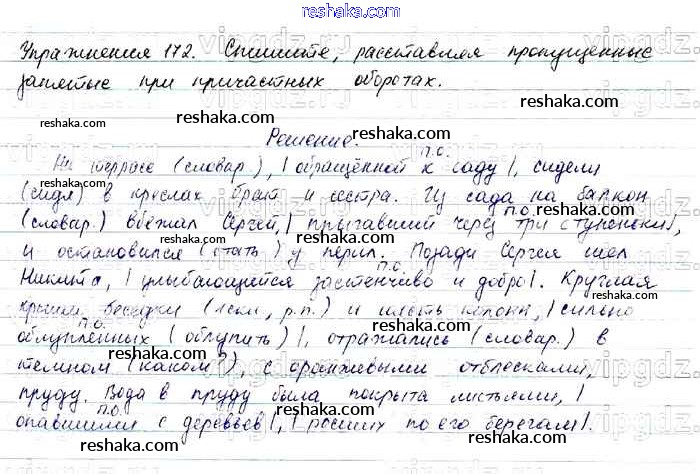 reshaka.com
Упражнения 172. Спишите, расставляя пропущенные
запятые при причастных оборотах.
reshaka.com
reshaka.com
Решение.
reshaka.com
п.о.
На террасе (словар.), | обращённой к саду |, сидели
reshaka.com
(сидя) в креслах брат и сестра. Из сада на балкон
п.о.
(словар.) вбежал Сергей, | прыгавший через три ступеньки |,
reshaka.com
и остановился (стать) у перил. Позади Сергея шёл
п.о.
Никита, | улыбающийся застенчиво и добро |. Круглая
reshaka.com
крыша беседки (1скл., р.п.) и шесть колонн, | сильно
п.о.
облупленных (облупить) |, отражались (словар.) в
reshaka.com
тёмном (каком?), с оранжевыми отблесками,
reshaka.com
пруду. Вода в пруду была покрыта листьями, |
п.о.
опавшими с деревьев |, | росших по его берегам |.
reshaka.com
reshaka.com